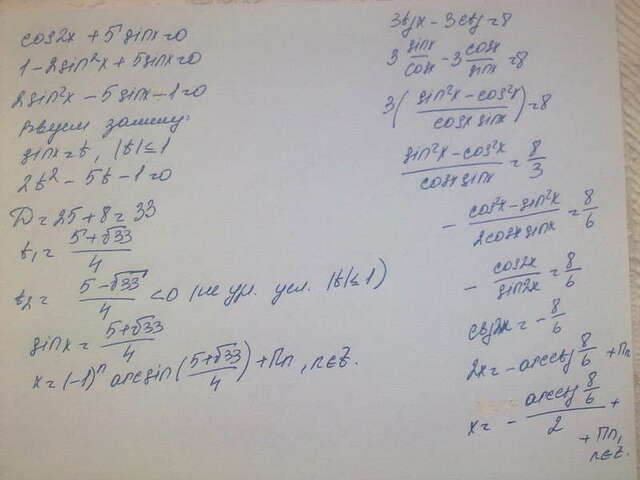 cos2x + 5 sinx=0
1-2sin²x+5sinx=0
2sin²x - 5sinx-1=0
Введем замену:
sinx=t, |t|≤1
2t² - 5t-1=0
D=25+8=33
t₁= (5+√33)/4
t₂= (5-√33)/4 <0 (не уд. усл. |t|≤1)
sinx= (5+√33)/4
x=(-1)ⁿ arcsin((5+√33)/4)+Пn, n∈Z.
3tgx - 3ctg=8
3 sinx/cosx - 3 cosx/sinx =8
3((sin²x-cos²x)/(cosx sinx))=8
(sin²x-cos²x)/(cosx sinx) = 8/3
- (cos²x-sin²x)/(2cosx sinx) = 8/6
- cos2x/sin2x = 8/6
ctg2x= - 8/6
2x= -arcctg 8/6 +Пn
x= - (arcctg 8/6)/2 +
+ Пn,
n∈Z.